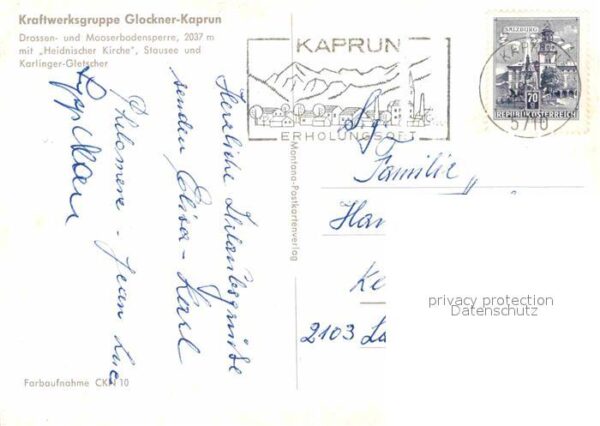 Kraftwerksgruppe Glockner-Kaprun
Drossen- und Mooserbodensperre, 2037 m
mit „Heidnischer Kirche", Stausee und
Karlinger-Gletscher
Herzliche Urlaubsgrüße
senden Elisa - Karl
Philomene - Jean Luc
Farbaufnahme CKM 10
Montana-Postkartenverlag
KAPRUN
ERHOLUNGSORT
SALZBURG
70
REPUBLIK ÖSTERREICH
KAPRUN
5710
Familie
Han
Ke
2103 La
privacy protection
Datenschutz